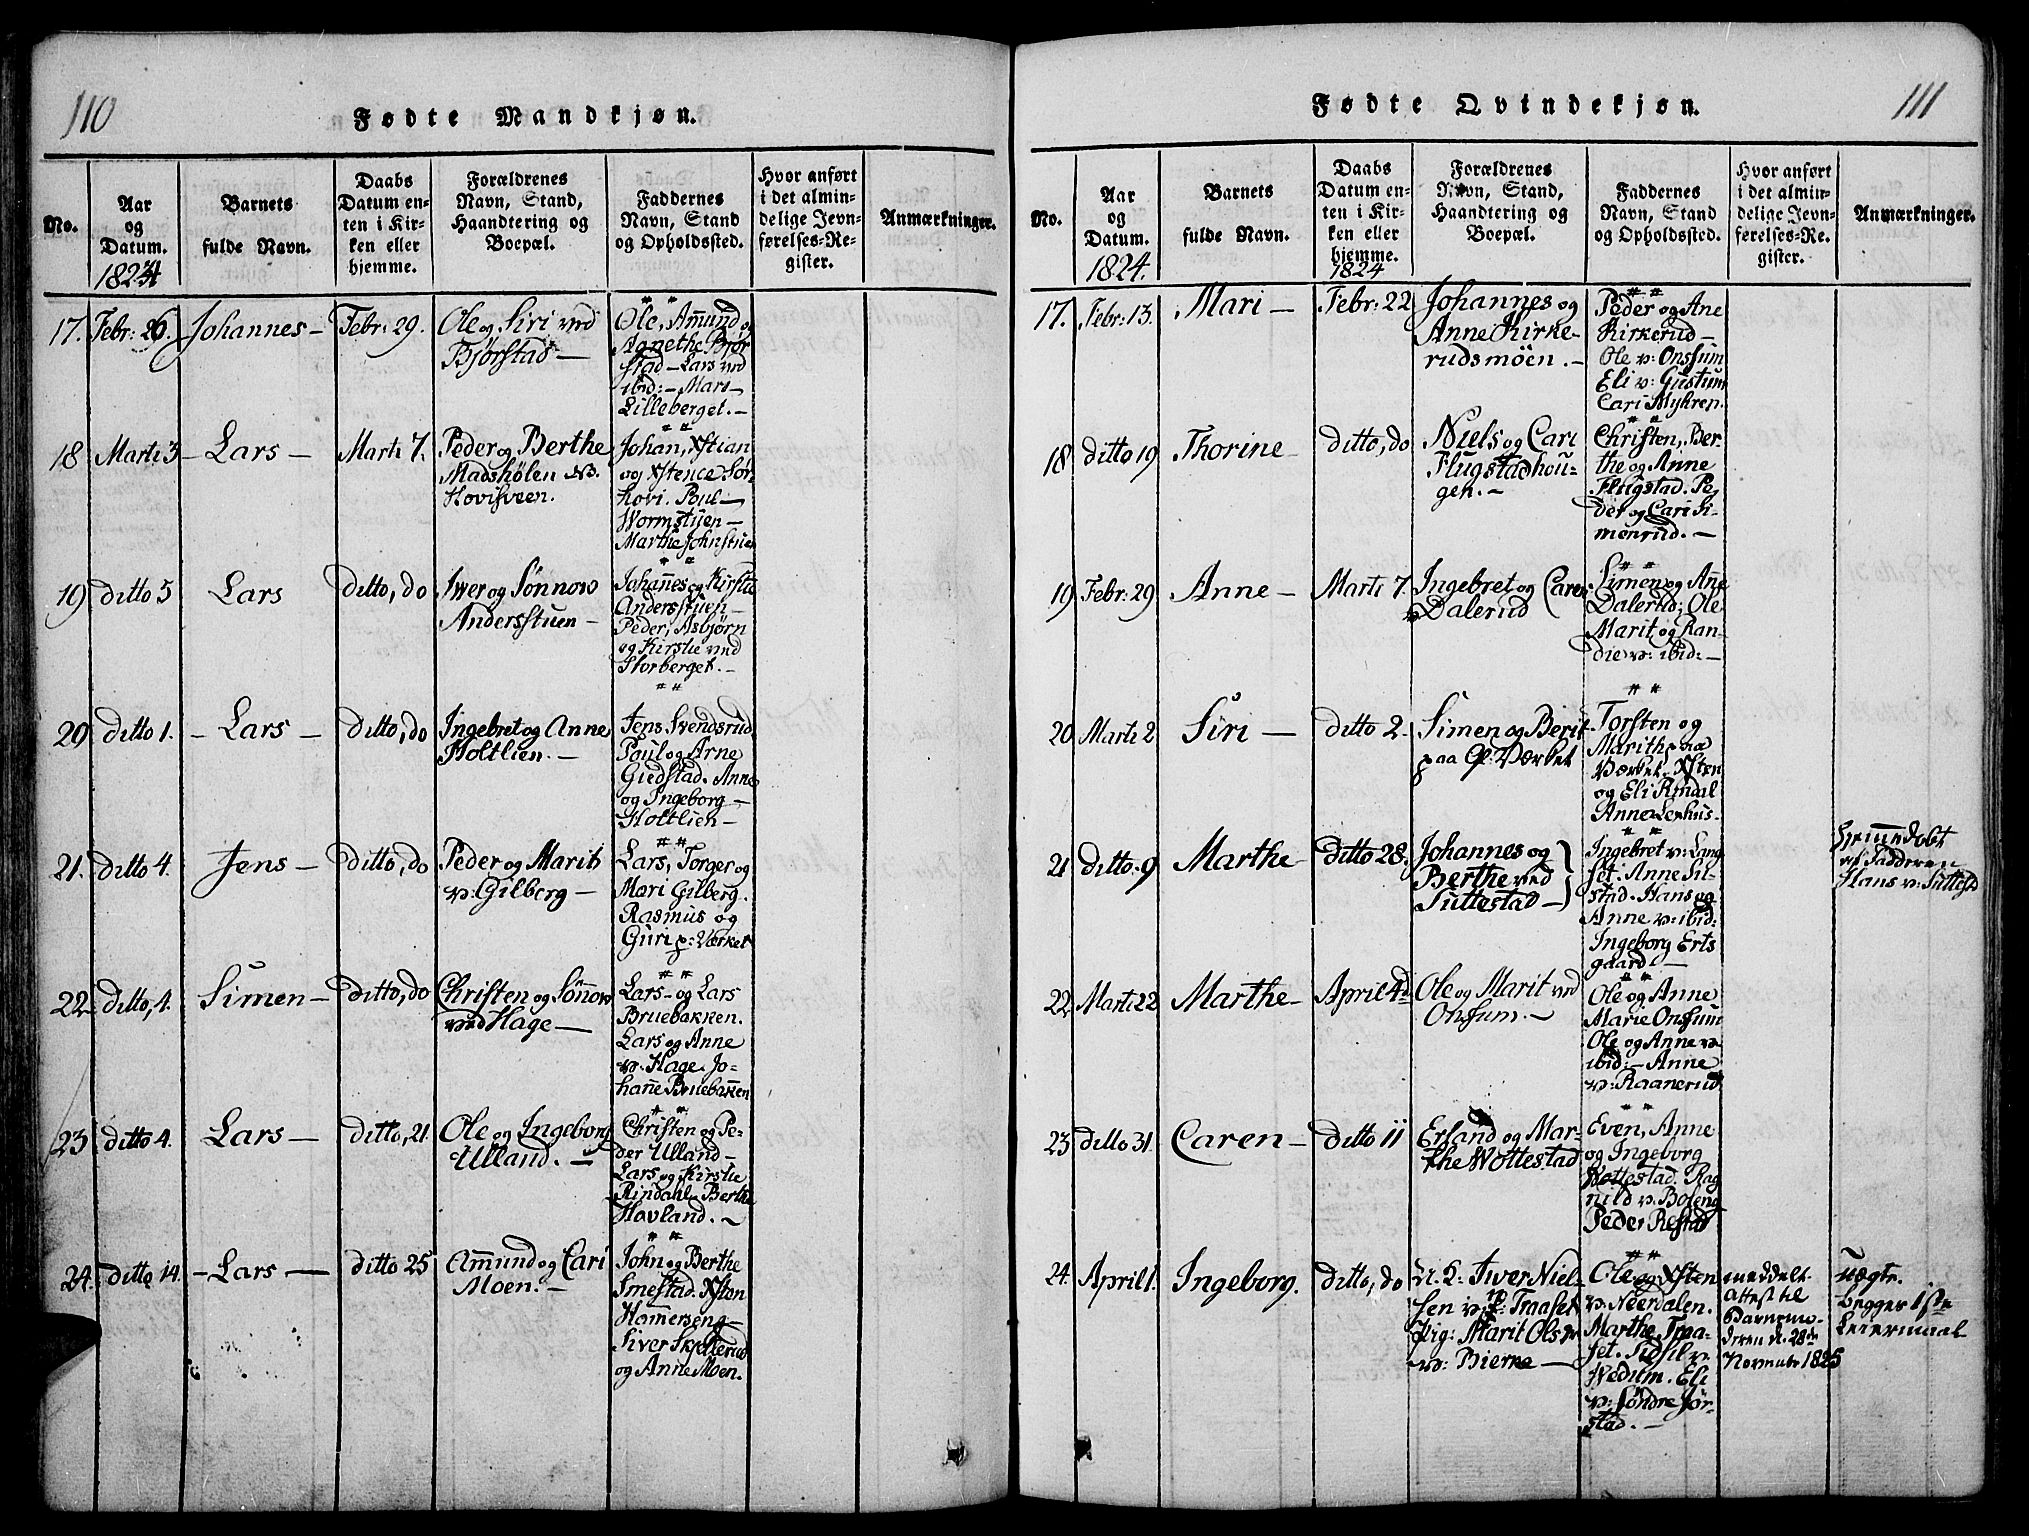 110
Fødte Mandkjøn.
No.
Aar
og
Datum.
1824
Barnets
fulde Navn.
Daabs
Datum en-
ten i Kir-
ken eller
hjemme.
Forældrenes
Navn, Stand,
Haandtering og
Boepæl.
Faddernes
Navn, Stand
og Opholdssted.
Hvor anført
i det almin-
delige Jevn-
førelses-Re-
gister.
Anmærkninger.
17. Febr: 26. Johannes – Febr: 29.
Ole og Siri ved
Bjørstad –
Ole, Amund og
Agnethe Bjør
stad – Lars ved
ibid: – Mari –
Lilleberget. –
18 Marti 3 – Lars – Marti 7.
Peder og Berthe
Madshølen
Hovisveen.
Johan, Xstian
og Xstence Søn
hovi. Poul –
Wormstuen –
Marthe Johnstuen
19 ditto 5 Lars ditto, do
Iwer og Sønnow
Andersstuen –
Johanes og Kirstie
Andersstuen –
Peder, Asbjørn
og Kirstie ved
Storberget. –
20 ditto 1. – Lars – ditto, do
Ingebret og Anne
Holtlien. –
Jens Svendsrud
Poul og Arne
Giedstad. Anne
og Ingeborg –
Holtlien –
21. ditto 4. Jens – ditto, do
Peder og Marit
v: Gilberg –
Lars, Torger og
Mari Gilberg.
Rasmus og
Guri p: Værket
22. ditto, 4. Simen – ditto, do
Christen og Sønow
ved Hage –
Lars – og Lars
Bruebakken.
Lars og Anne
v. Hage. Jo-
hane Bruebakken
23 ditto 4. Lars – ditto, 21.
Ole og Ingeborg
Ulland. –
Christen og Pe-
der Ulland –
Lars og Kirstie
Rindahl. Berthe
Hovland. –
24. ditto 14. – Lars – ditto 25
Amund og Cari
Moen. –
John og Berthe
Smestad. Xsten
Hammerseng
Siver Skjellerud
og Anne Moen.
111
Fødte Qvindekjøn.
No.
Aar
og
Datum.
1824.
Barnets
fulde Navn.
Daabs
Datum en-
ten i Kir-
ken eller
hjemme.
1824
Forældrenes
Navn, Stand,
Haandtering og
Boepæl.
Faddernes
Navn, Stand
og Opholdssted.
Hvor anført
i det almin-
delige Jevn-
førelses-Re-
gister.
Anmærkninger.
17. Febr: 13. Mari – Febr: 22
Johannes og
Anne Kirke-
rudsmoen. –
Peder og Ane
Kirkerud –
Ole v: Onssum
Eli v: Gustum
Cari Myhren.
18 ditto 19 Thorine – ditto, do
Niels og Cari
Flugstadhou-
gen. –
Christen, Ber-
the og Anne
Flugstad. Pe-
der og Cari Si-
menrud. –
19 Febr: 29 Anne – Marti 7.
Ingebret og Caren
v Dalerud
Simen og Ane
Dalerud; Ole
Marit og Ran-
die v: ibid: –
20 Marti 2 Siri – ditto 2.
Simen og Berit
paa Gl: Værket
Torsten og
Marithe paa
Værket. Xsten
og Eli
Anne Lenhus.
21 ditto 9 Marthe – ditto 28.
Johannes og
Berthe ved
Suttestad –
Ingebret v: Lang
set. Anne Sut-
stad. Hans og
Anne v: ibid:
Ingeborg Erts
gaard. –
Hjemmedøbt
af Fadderen
Hans v: Suttestd
22. Marti 22 Marthe – April 4d
Ole og Marit ved
Onsum. –
Ole og Anne
Marie Onssum
Ole og Anne v:
ibid: – Anne
v: Raanerud
23 ditto 31. Caren – ditto 11
Erland og Mar-
the Wottestad
Even, Anne
og Ingeborg
Wottestad. Rag
nild v: Boleng
Peder Restad
24. April 1. Ingeborg. ditto, do
U. K: Iver Niel-
sen v: Traaset
Pig: Marit Olsdr
v: Bierke –
Ole og Xsten
v: Neerdalen.
Marthe Traa-
set. Sidsil v:
Wedum. Eli
v: Søndre Jør-
stad. –
meddelt
Attest til
Barnemo-
deren d. 28de
November 1825
Uægte.
Begges 1ste
Leiermaal